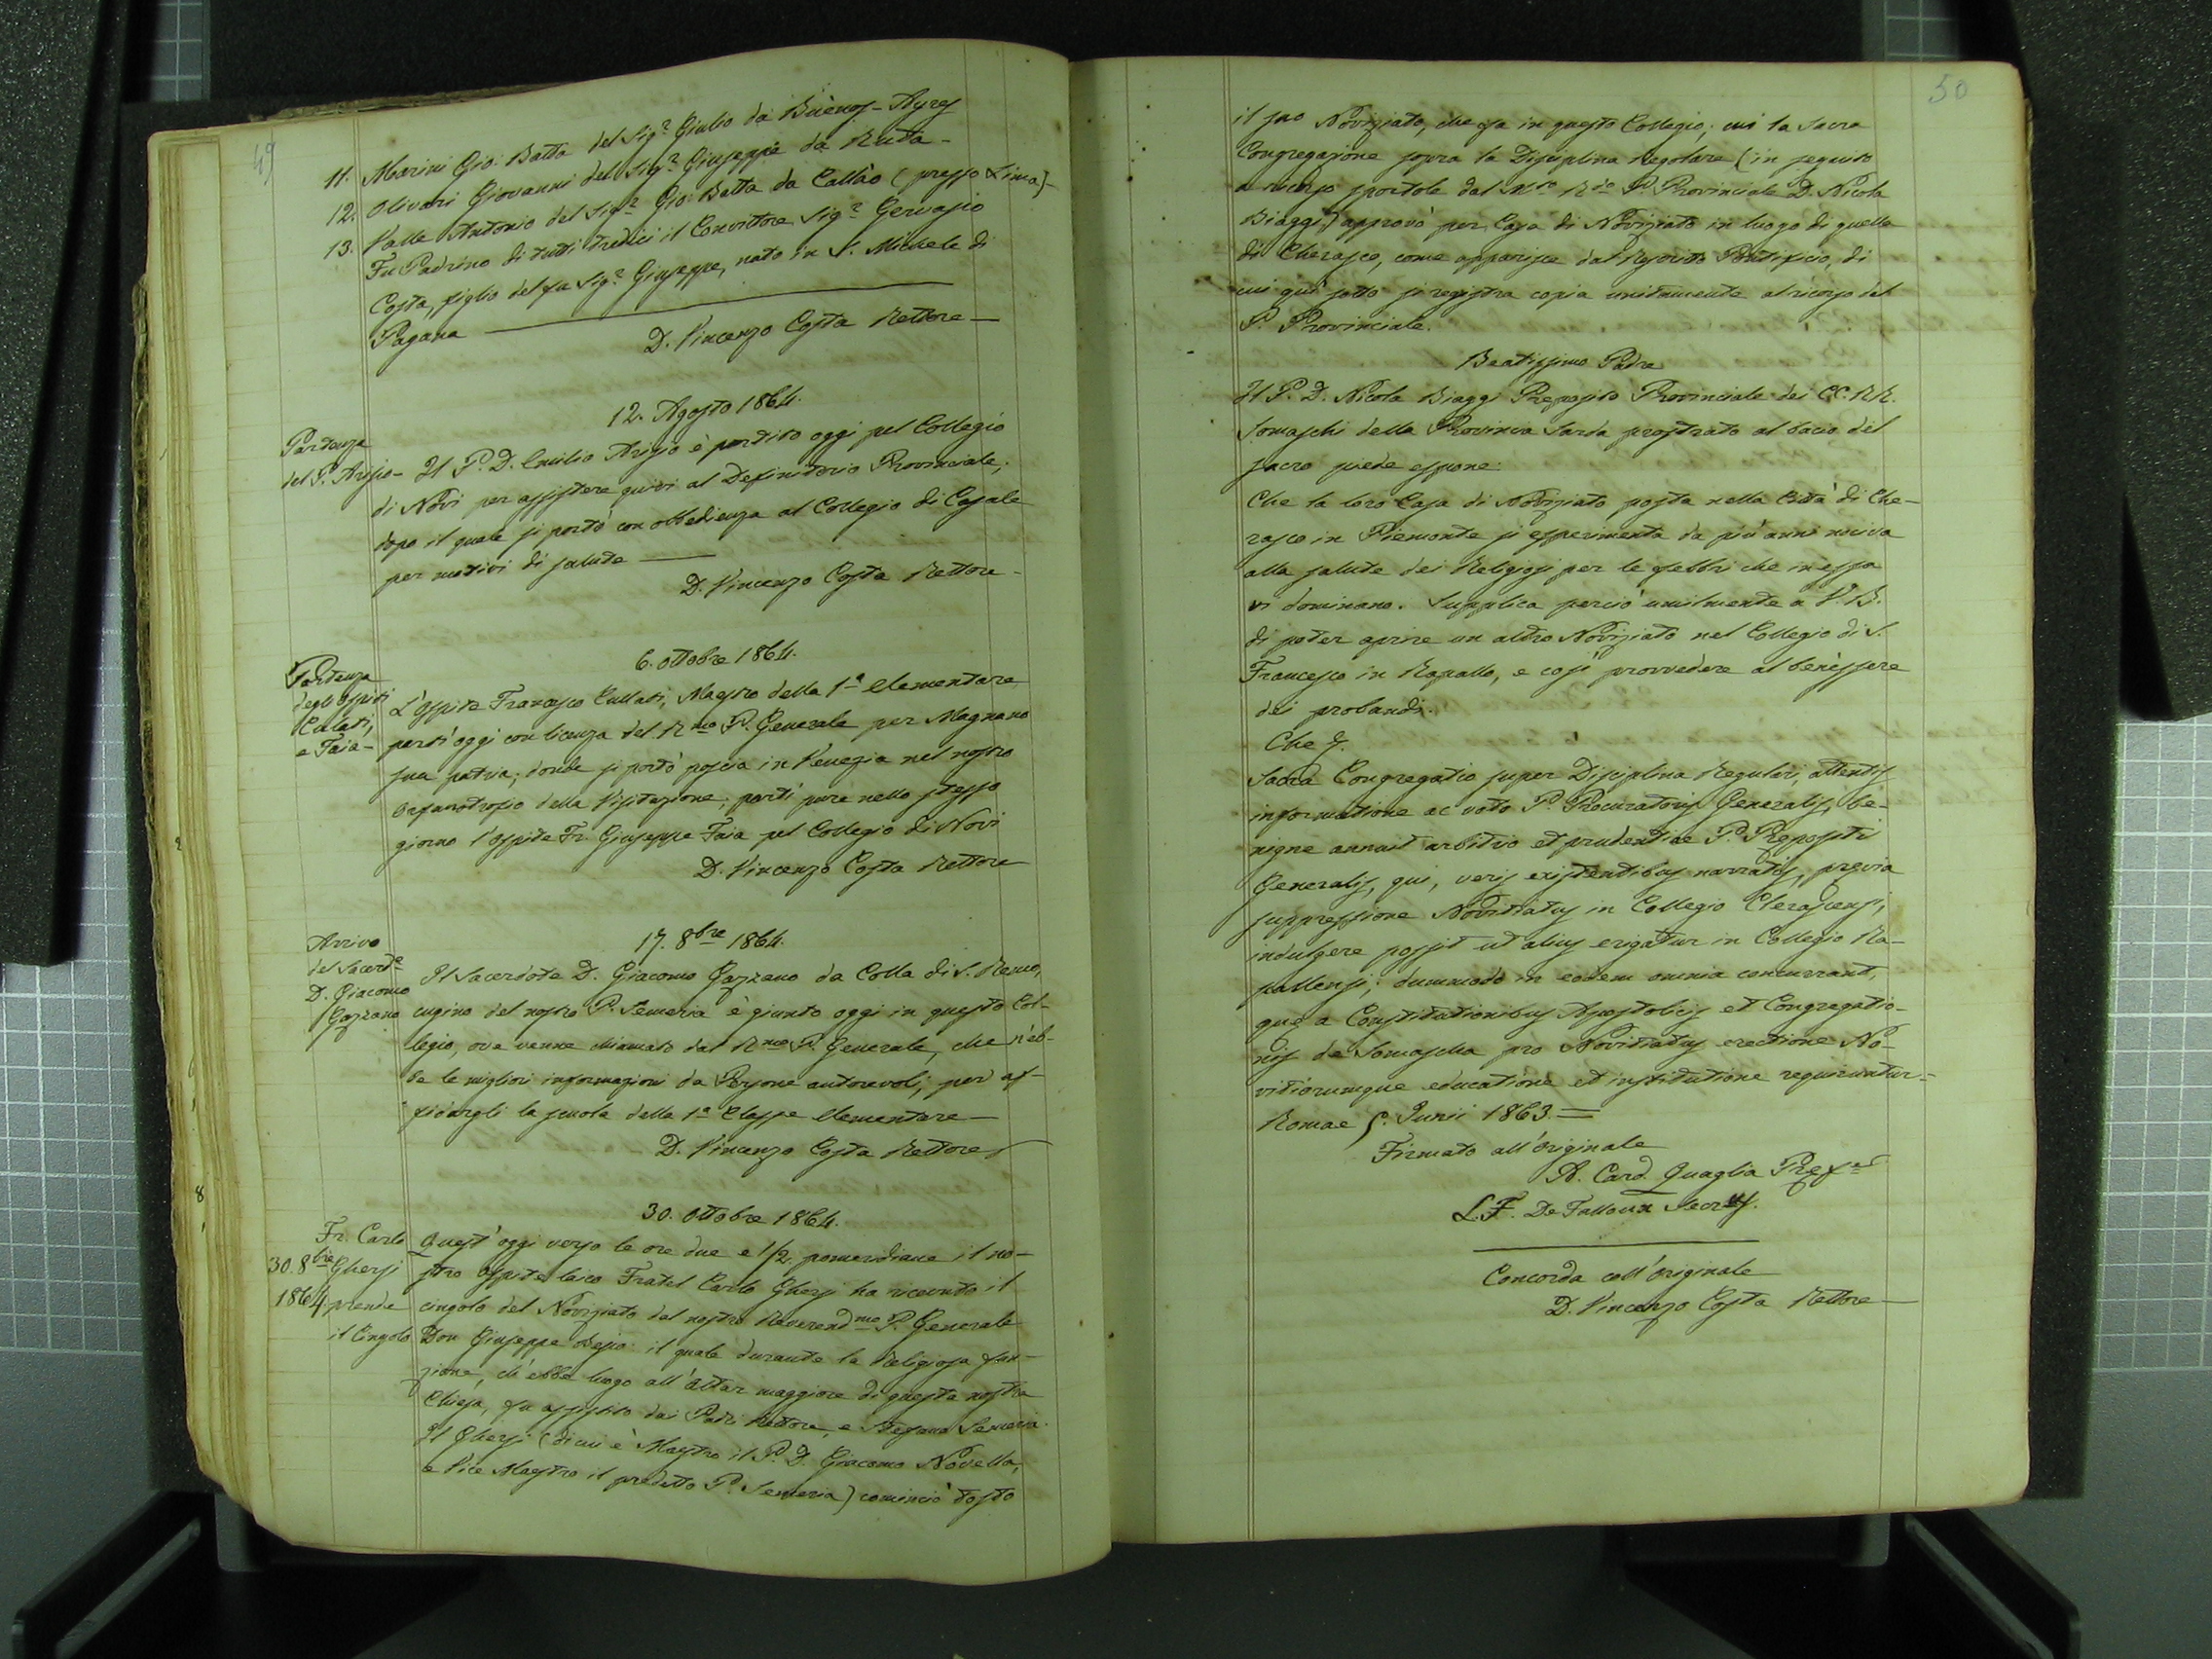 49
11. Marini Gio: Batta del Sig.r Giulio da Buenos-Ayres
12. Olivari Giovanni del Sig.r Giuseppe da Ruta-
13. Valle Antonio del Sig.r Gio: Batta da Callao (presso Lima)-
Fu Padrino di tutti tredici il Convittore Sig.r Gervasio
Costa, figlio del fu Sig.r Giuseppe, nato in S. Michele di
Pagana
D. Vincenzo Costa Rettore-
12. Agosto 1864.
Partenza
del P. Arisio-
Il P. D. Emilio Arisio è partito oggi pel Collegio
di Novi per assistere quivi al Definitorio Provinciale;
dopo il quale si portò con obbedienza al Collegio di Casale
per motivi di salute
D. Vincenzo Costa Rettore-
6. Ottobre 1864.
Partenza
degli Ospiti
Culati,
e Faia-
L'Ospite Francesco Cullati, Maestro della 1.a Elementare
partì oggi con licenza del R.mo P. Generale per Magnano
sua patria; donde si portò poscia in Venezia nel nostro
Orfanotrofio della Visitazione; partì pure nello stesso
giorno l'Ospite Fr. Giuseppe Faia pel Collegio di Novi
D. Vincenzo Costa Rettore
17. 8bre 1864.
Arrivo
del Sacerd.e
D. Giacomo
Gazzano
Il Sacerdote D. Giacomo Gazzano da Colla di S. Remo,
cugino del nostro P. Semeria è giunto oggi in questo Col-
legio, ove venne chiamato dal R.mo P. Generale, che n'eb-
be le migliori informazioni da Persone autorevoli, per af-
fidargli la scuola della 1.a Classe Elementare-
D. Vincenzo Costa Rettore
30. Ottobre 1864.
Fr. Carlo
30. 8bre Ghersi
1864. prende
il Cingolo
Quest'oggi verso le ore due e 1/2 pomeridiane il no-
stro Ospite laico Fratel Carlo Ghersi ha ricevuto il
cingolo del Noviziato dal nostro Reverend.mo P. Generale
Don Giuseppe Besio: il quale durante la Religiosa fun-
zione, ch'ebbe luogo all'Altar maggiore di questa nostra
Chiesa, fu assistito dai Padri Rettore, e Stefano Semeria.
Il Ghersi (di cui è Maestro il P. D. Giacomo Novella,
e Vice Maestro il predetto P. Semeria) cominciò tosto
50
il suo Noviziato, che fa in questo Collegio; cui la Sacra
Congregazione sopra la Disciplina Regolare (in seguito
a ricorso sportole dal M.to R.do P. Provinciale D. Nicola
Biaggi) approvò per Casa di Noviziato in luogo di quella
di Cherasco, come apparisce dal Rescritto Pontificio, di
cui quì sotto si registra copia unitamente al ricorso del
P. Provinciale.
Beatissimo Padre
Il P. D. Nicola Biaggi Preposito Provinciale dei CC. RR.
Somaschi della Provincia Sarda prostrato al bacio del
sacro piede espone:
Che la loro Casa di Noviziato posta nella Città di Che-
rasco in Piemonte si esperimenta da più anni nociva
alla salute dei Religiosi per le febbri che in essa
vi dominano. Supplica perciò umilmente a V. B.
di poter aprire un altro Noviziato nel Collegio di S.
Francesco in Rapallo, e così provvedere al benèssere
dei probandi.
Che &.
Sacra Congregatio super Disciplina Regulari, attentis
informatione ac voto P. Procuratoris Generalis, be-
nigne annuit arbitrio et prudentiae P. Prepositi
Generalis, qui, veris existentibus narratis, previa
suppressione Novitiatus in Collegio Clerascensi,
indulgere possit ut alius erigatur in Collegio Ra-
pallensi; dummodo in eodem omnia concurrant,
que a Constitutionibus Apostolicis et Congregatio-
nis de Somascha pro Novitiatus erectione No-
vitiorumque educatione et institutione requiruntur=
Romae 5. Junii 1863.=
Firmato all'Originale
A. Card. Quaglia Pref.us
L.F. De Falloux Secrus.
Concorda coll'Originale
D. Vincenzo Costa Rettore